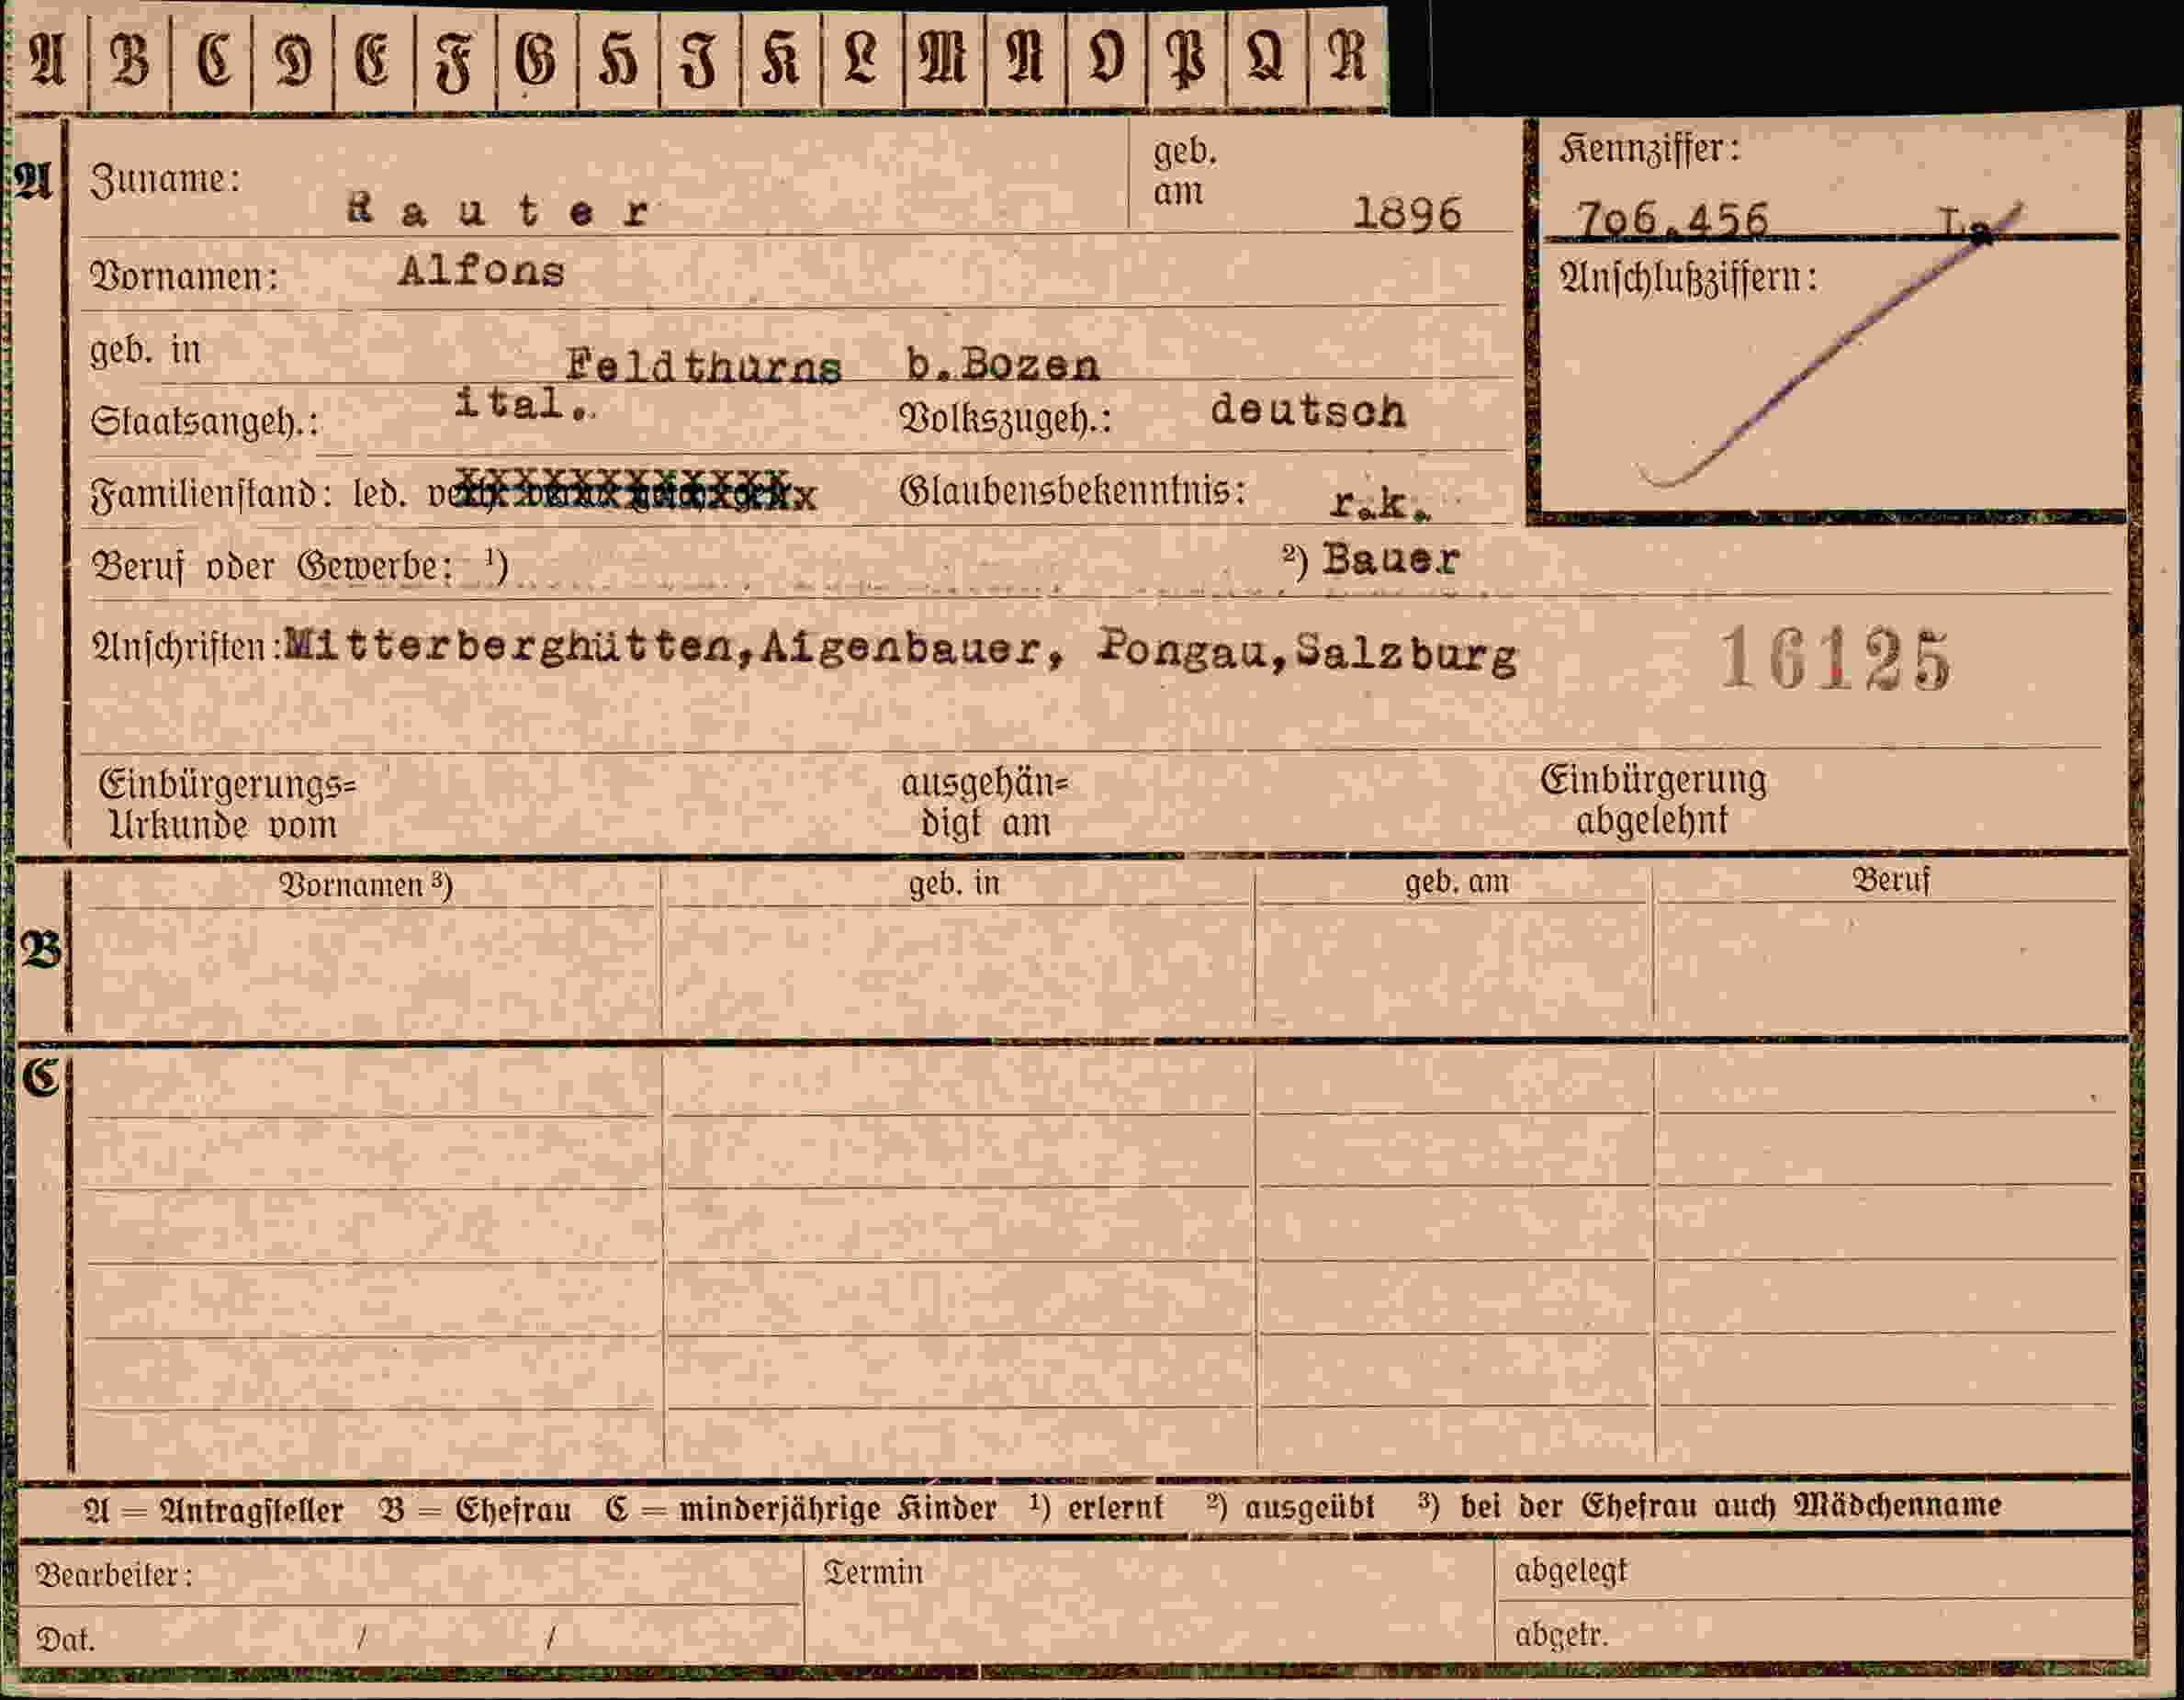 A B C D E F G H I K L M N O P Q R
A Zuname: Rauter geb. am 1896
Kennziffer: 706.456 La
Vornamen: Alfons
Anschlußziffern:
geb. in Feldthurns b.Bozen
Staatsangeh.: ital. Volkszugeh.: deutsch
Familienstand: led. Glaubensbekenntnis: r.k.
Beruf oder Gewerbe: ¹) ²) Bauer
Anschriften: Mitterberghütten,Aigenbauer, Pongau,Salzburg 16125
Einbürgerungs= ausgehän= Einbürgerung
Urkunde vom digt am abgelehnt
Vornamen ³) geb. in geb. am Beruf
B
C
A = Antragsteller B = Ehefrau C = minderjährige Kinder ¹) erlernt ²) ausgeübt ³) bei der Ehefrau auch Mädchenname
Bearbeiter: Termin abgelegt
Dat. / / abgetr.